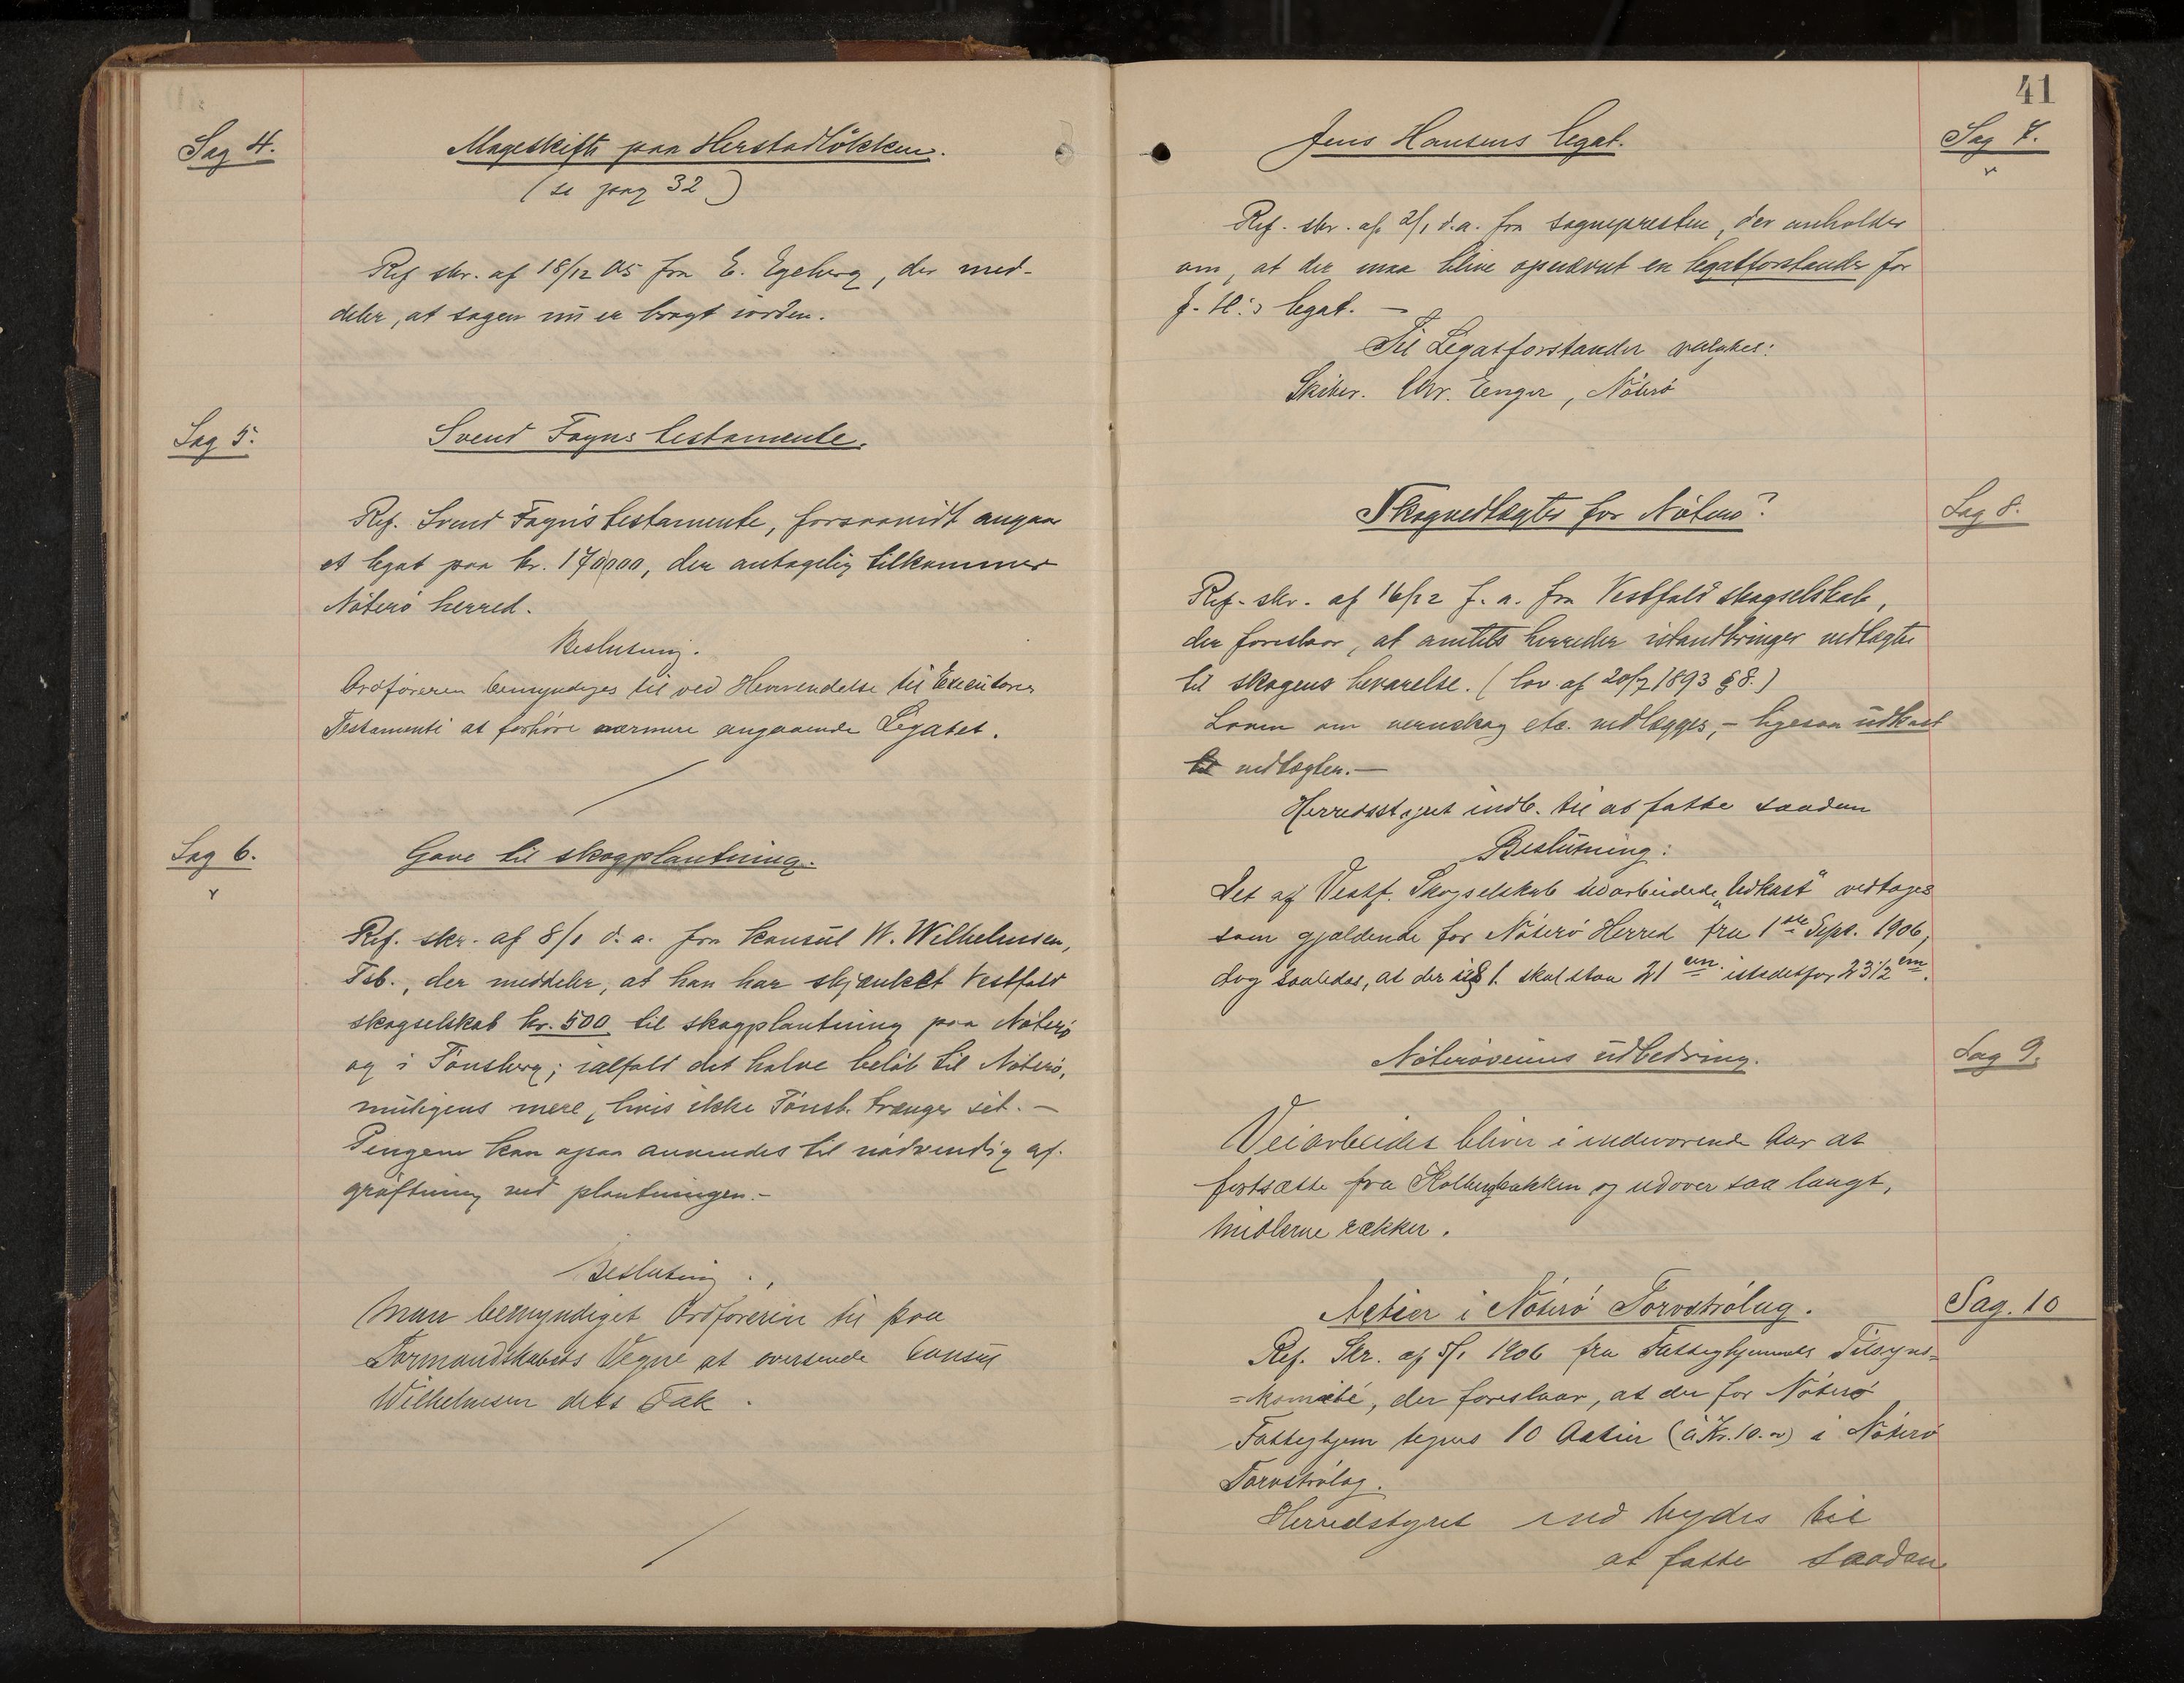 Sag 4.
Mageskifte paa Herstadlökken.
(se pag 32)
Ref skr. af 18/12 05 fra E. Egeberg, der med-
deler, at sagen nu er bragt iorden.
Sag 5.
Svend Foyns testamente.
Ref. Svend Foyn's testamente, forsaavidt angaar
et legat paa kr. 170000, der antagelig tilkommer
Nöterö herred.
Beslutning.
Ordföreren bemyndiges til ved Henvendelse til Executores
Testamenti at forhöre nærmere angaaende Legatet.
Sag 6.
Gave til skogplantning.
Ref. skr. af 8/1 d. a. fra konsul W. Wilhelmsen,
Tsb., der meddeler, at han har skjænket Vestfold
skogselskab kr. 500 til skogplantning paa Nöterö
og i Tönsberg; ialfald det halve belöb til Nöterö,
muligens mere, hvis ikke Tönsb. trænger sit. —
Pengene kan ogsaa anvendes til nödvendig af-
gröftning ved plantningen. -
Beslutning.
Man bemyndiget Ordföreren til paa
Formandskabets Vegne at oversende Consul
Wilhelmsen dets Tak.
41
Jens Hansens legat.
Sag 7.
Ref. skr. af 2/1 d. a. fra sognepresten, der anholder
om, at der maa blive opnævnt en legatforstander for
J. H.'s legat. —
Til Legatforstander valgtes:
Skiber. Chr. Enger, Nöterö
Skogvedtægter for Nöterö?
Sag 8.
Ref. skr. af 16/12 f. a. fra Vestfold skogselskab,
der foreslaar, at amtets herreder istandbringer vedtægter
til skogens bevarelse. (lov af 20/7 1893 § 8.)
Loven om vernskog etc. vedlægges, - ligesaa udkast
til vedtægter. —
Herredsstyret indb. til at fatte saadan
Beslutning:
Det af Vestf. Skogselskab udarbeidede „Udkast" vedtages
som gjældende for Nöterö Herred fra 1ste Sept. 1906,
dog saaledes, at der i § 1. skal staa 21 cm. istedetfor 23 1/2 cm.
Nöteröveiens udbedring.
Sag 9.
Veiarbeidet bliver i indeværende Aar at
fortsætte fra Kolbergbakken og udover saa langt,
Midlerne rækker.
Actier i Nöterö Torvströlag.
Sag. 10
Ref. Skr. af 5/1 1906 fra Fattighjemmets Tilsyns=
=komité, der foreslaar, at der for Nöterö
Fattighjem tegnes 10 Actier (à Kr. 10.00) i Nöterö
Torvströlag.
Herredstyret ind bydes til
at fatte saadan